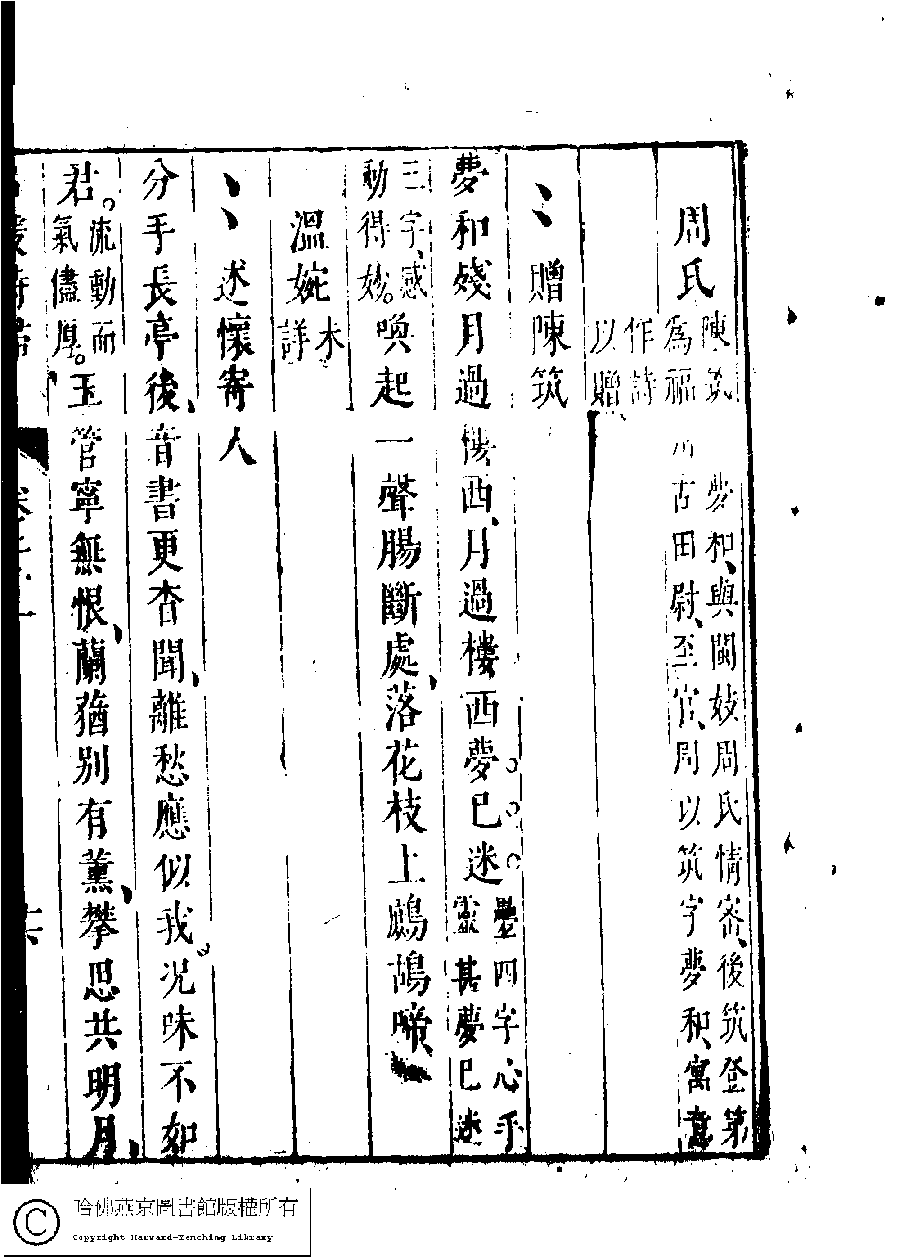 周氏
陳筑夢和、與閩妓周氏情密、後筑登第
為福古田尉、至官、周以筑字夢和、寓意
作詩
以贈、
贈陳筑
夢和殘月過樓西、月過樓西夢已迷。疊四字心手
靈甚夢已迷
三字、感
動得妙。喚起一聲腸斷處、落花枝上鷓鴣啼、
溫婉未
詳
述懷寄人
分手長亭後、音書更杳聞、離愁應似我、况味不如
君。流動而
氣儘厚。玉管寧無恨、蘭猶別有薰、攀思共明月、
哈佛燕京圖書館版權所有
Copyright Harvard-Yenching Library